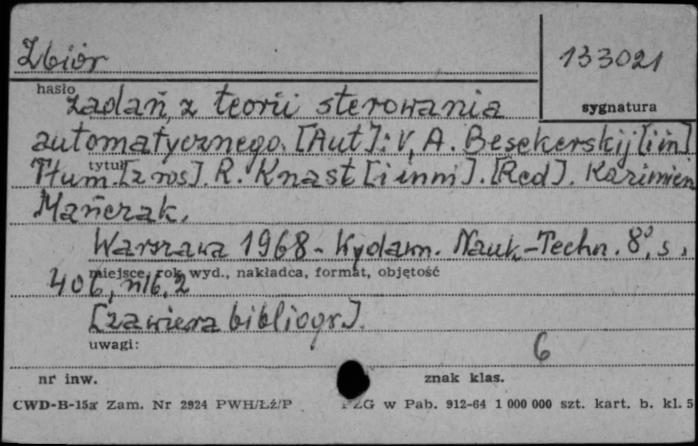 Zbiór
133021
hasło
sygnatura
zadań z teorii sterowania
automatycznego. [Aut]: V. A. Besekerskij [i in].
tytuł
Tłum. [z ros]. R. Knast [i inni]. [Red]. Kazimierz
Mańczak.
Warszawa 1968 - Wydawn. Nauk-Techn. 8°, s.
miejsce, rok wyd., nakładca, format, objętość
406,
[zawiera bibliogr].
uwagi:
6
nr inw.
znak klas.
CWD-B-15a Zam. Nr 2924 PWH/Łź/P
PZG w Pab. 912-64 1 000 000 szt. kart. b. kl. 5